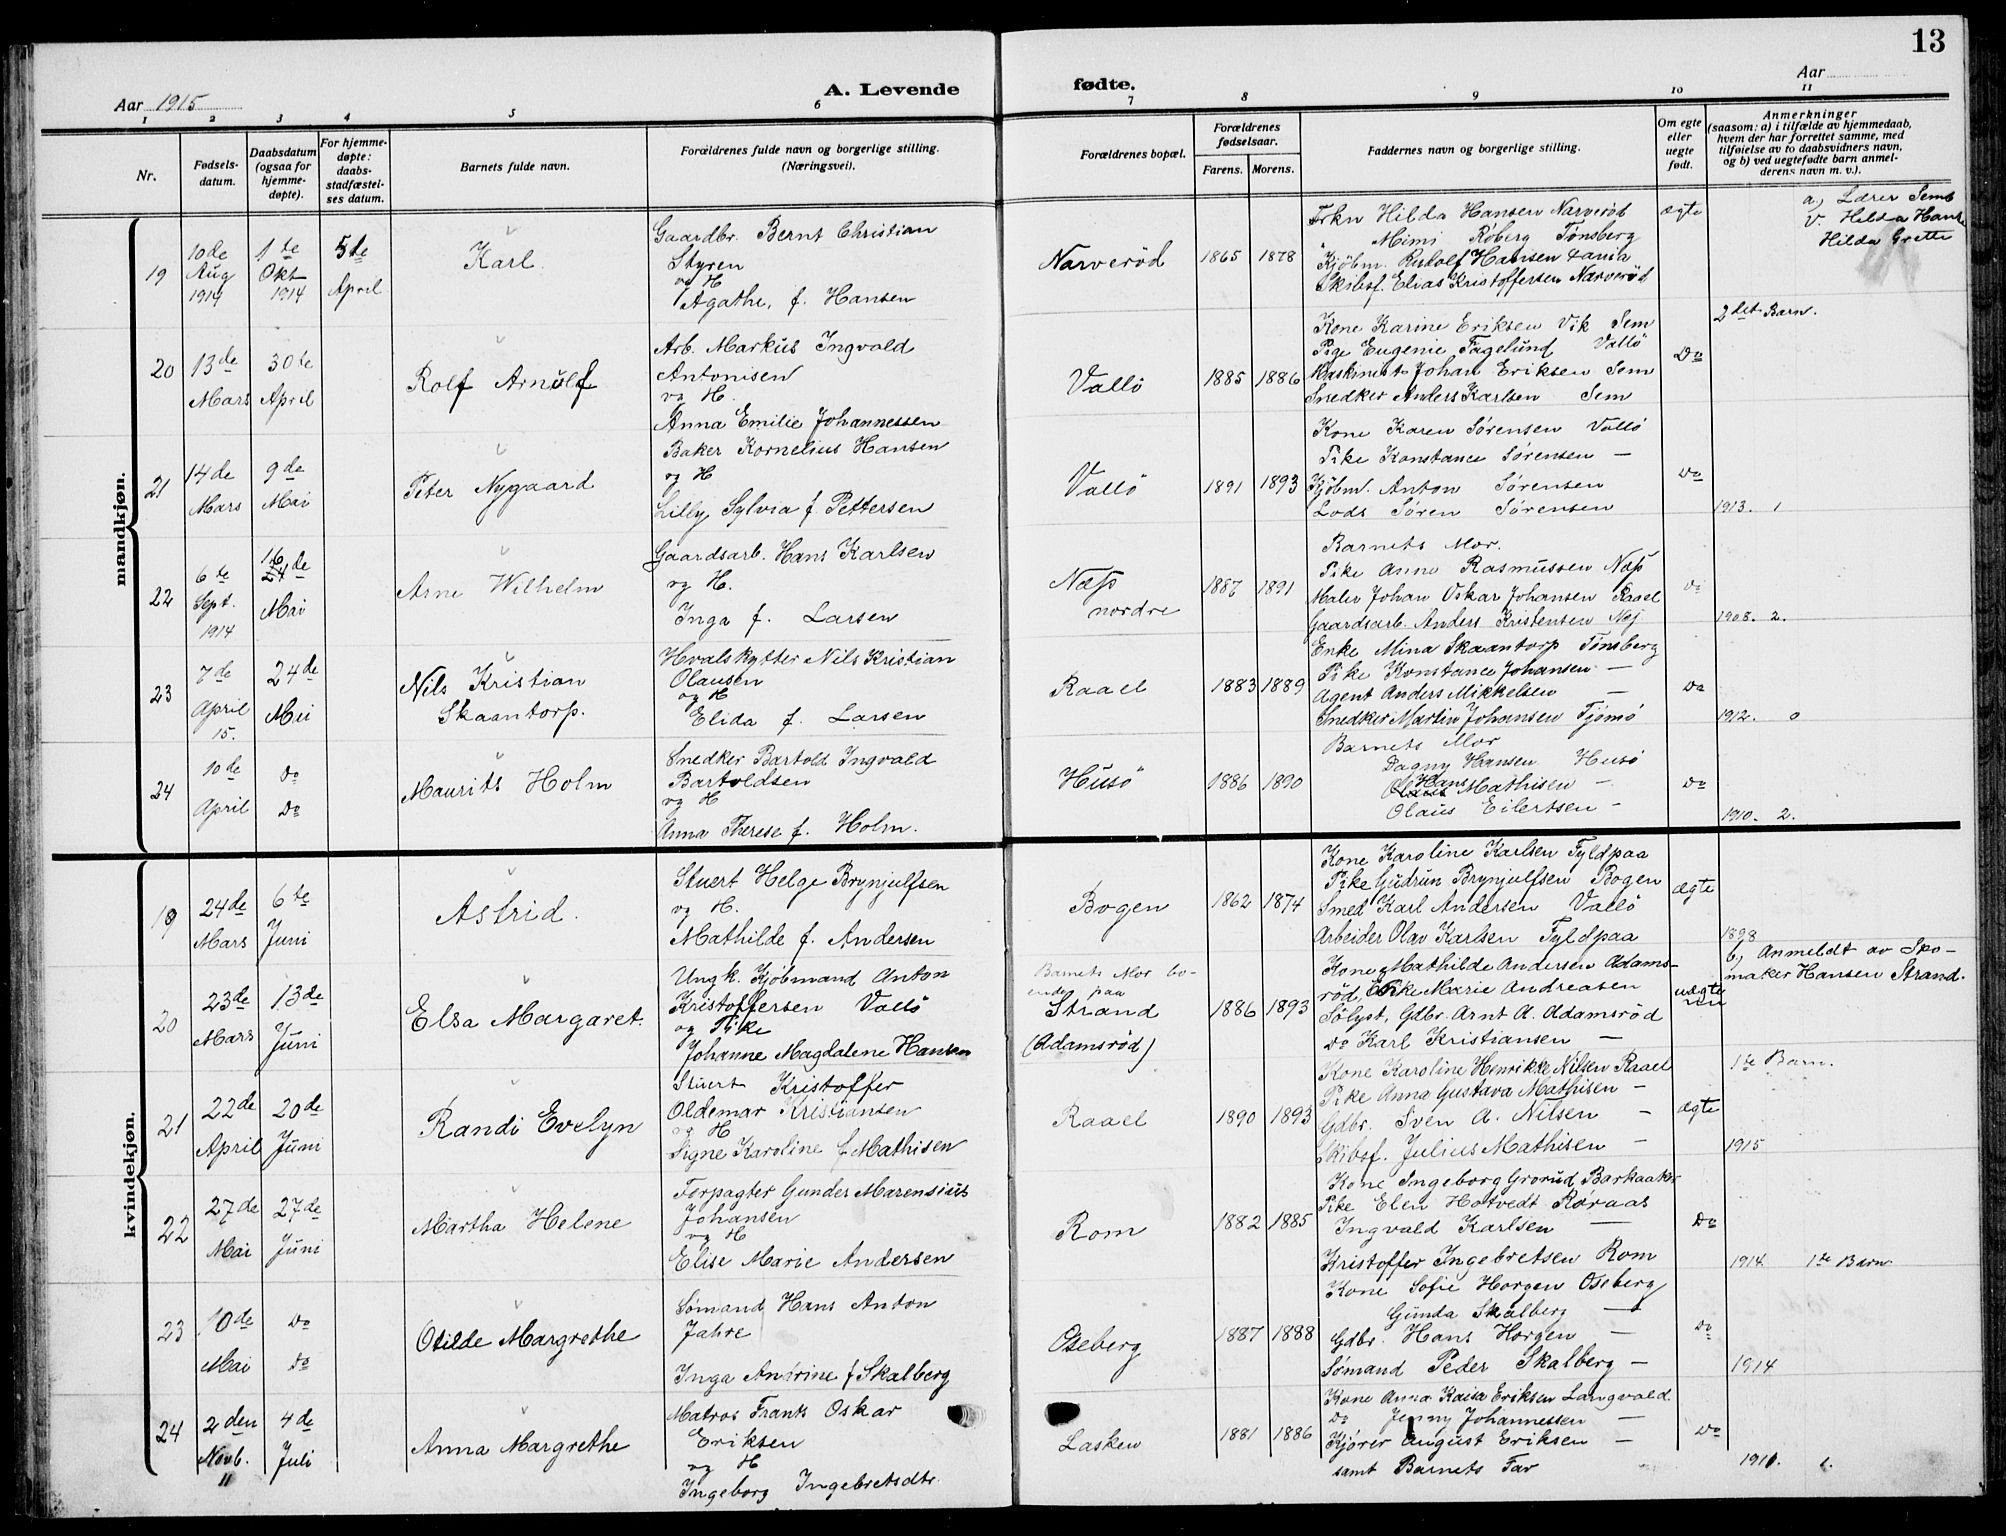 13
Aar 1915
A. Levende
fødte.
Aar
1 2 3 4 5 6 7 8 9 10 11
Nr.
Fødsels-
datum.
Daabsdatum
(ogsaa for
hjemme-
døpte).
For hjemme-
døpte:
daabs-
stadfæstel-
ses datum.
Barnets fulde navn.
Forældrenes fulde navn og borgerlige stilling.
(Næringsvei).
Forældrenes bopæl.
Forældrenes
fødselsaar.
Farens. Morens.
Faddernes navn og borgerlige stilling.
Om egte
eller
uegte
født.
Anmerkninger
(saasom: a) i tilfælde av hjemmedaab,
hvem der har forrettet samme, med
tilføielse av to daabsvidners navn,
og b) ved uegtefødte barn anmel-
derens navn m. v.).
mandkjøn.
19
10de
Aug
1914
1te
Okt
1914
5te
April
Karl
Gaardbr. Bernt Christian
Styren
og H
Agathe, f. Hansen
Narverød
1865 1878
Frkn Hilda Hansen Narverød
" Mimi Röberg Tønsberg
Kjöbm. Rudolf Hansen
Skibsf. Elias Kristoffersen Narverød
ægte
a) Lærer Semb
v. Hilda Hans
Hilda Grette
20
13de
Mars
30te
April
Rolf Arnulf
Arb. Markus Ingvald
Antonisen
og H.
Anna Emilie Johannessen
Vallö
1885 1886
Kone Karine Eriksen Vik Sem
Pige Eugenie Fagelund Vallö
Maskinist Johan Eriksen Sem
Snedker Anders Karlsen Sem
Do
2det Barn.
21
14de
Mars
9de
Mai
Peter Nygaard
Baker Kornelius Hansen
og H
Lilly Sylvia f. Pettersen
Vallö
1891 1893
Kone Karen Sørensen Vallö
Pike Konstance Sørensen —
Kjöbm. Anton Sørensen
Lods Søren Sørensen
Do
1913. 1
22
6te
Sept.
1914
16
24de
Mai
Arne Wilhelm
Gaardsarb. Hans Karlsen
og H.
Inga f. Larsen
Næss
nordre
1887 1891
Barnets Mor.
Pike Anna Rasmussen Næss
Maler Johan Oskar Johansen Raael
Gaardsarb. Anders Kristensen
Do
1908. 2.
23
7de
April
15.
24de
Mai
Nils Kristian
Skaantorp.
Hvalskytter Nils Kristian
Olausen
og H
Elida f. Larsen
Raael
1883 1889
Enke Mina Skaantorp Tønsberg
Pike Konstance Johansen —
Agent Anders Mikkelsen —
Snedker Martin Johansen Tjömö
Do
1912. 0
24
10de
April
Do
Do
Maurits Holm
Snedker Bartold Ingvald
Bartoldsen
og H
Anna Therese f. Holm.
Husö
1886 1890
Barnets Mor
Dagny Hansen Husö
Hans Mathisen —
Olaus Eilertsen —
Do
1910. 2.
kvindekjøn.
19
24de
Mars
6te
Juni
Astrid.
Stuert Helge Brynjulfsen
og H.
Mathilde f. Andersen
Bogen
1862 1874
Kone Karoline Karlsen Fyldpaa
Pike Gudrun Brynjulfsen Bogen
Smed Karl Andersen Vallö
Arbeider Olav Karlsen Fyldpaa
ægte
1898
20
23de
Mars
13de
Juni
Elsa Margaret.
Ungk. Kjöbmand Anton
Kristoffersen Vallö
og Pike
Johanne Magdalene Hansen
Barnets Mor bo-
ende paa
Strand
(Adamsrød)
1886 1893
Kone Mathilde Andersen Adams-
rød, Pike Marie Andreasen
Sölyst, Gdbr. Arnt A. Adamsröd
Do Karl Kristiansen —
uægte
b) Anmeldt av Sko-
maker Hansen Strand.
21
22de
April
20de
Juni
Randi Evelyn
Stuert Kristoffer
Oldemar Kristiansen
og H
Signe Karoline f Mathisen
Raael
1890 1893
Kone Karoline Henrikke Nilsen Raael
Pike Anna Gustava Mathisen —
Gdbr. Sven A. Nilsen —
Skibsf. Julius Mathisen —
ægte
1te Barn.
1915
22
27de
Mai
27de
Juni
Martha Helene
Forpagter Gunder Marensius
Johansen
og H
Elise Marie Andersen
Rom
1882 1885
Kone Ingeborg Grorud Barkaaker
Pike Elen Hotvedt Röraas
Ingvald Karlsen —
Kristoffer Ingebretsen Rom
Do
1914 1te Barn
23
10de
Mai
Do
Do
Otilde Margrethe
Sømand Hans Anton
Jahre
Inga Andrine f Skalberg
Oseberg
1887 1888
Kone Sofie Horgen Oseberg
Gunda Skalberg —
Gdbr. Hans Horgen —
Sømand Peder Skalberg —
Do
1914
24
2den
Novb.
11
4de
Juli
Anna Margrethe
Matros Frants Oskar
Eriksen
og H
Ingeborg Ingebretsdtr.
Lasken
1881 1886
Kone Anna Kaisa Eriksen Langvald
Do Jenny Johannessen —
Kjører August Eriksen —
samt Barnets Far
Do
1911. 1.